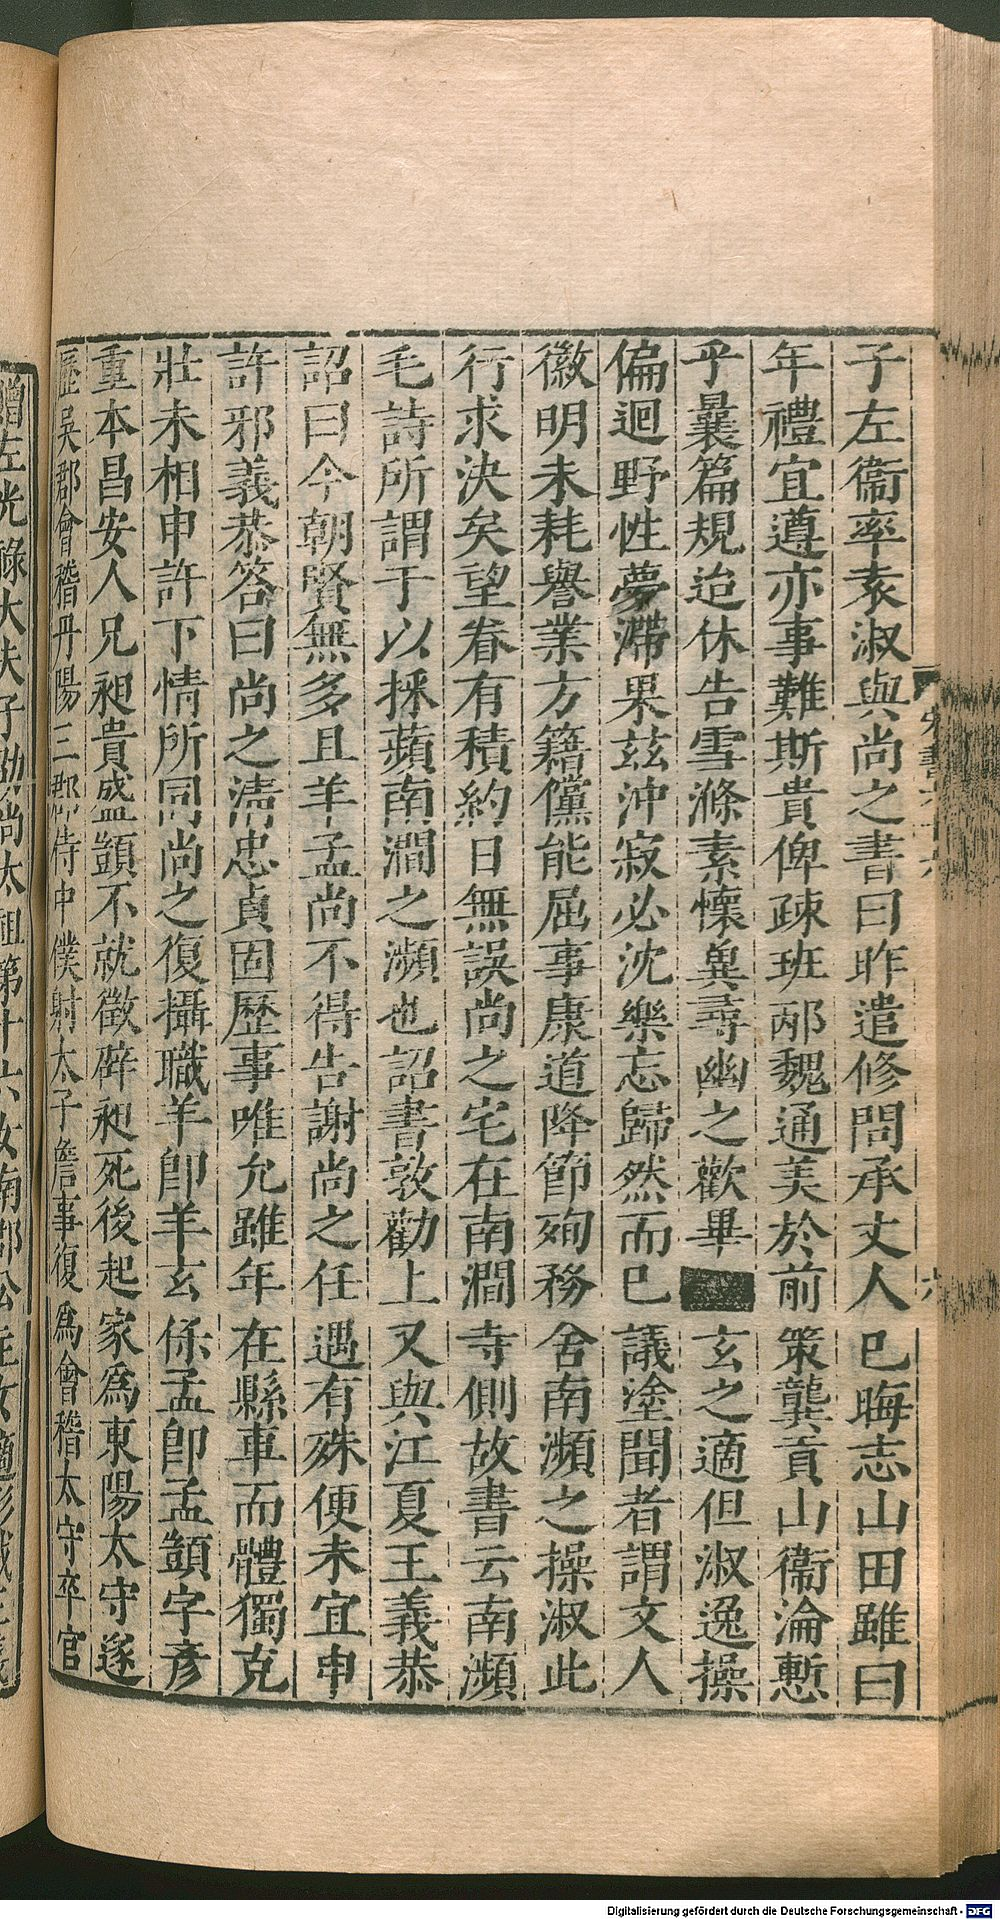 子左衞率袁淑與尚之書曰昨遣修問承丈人已晦志山田雖曰
年禮宜遵亦事難斯貴俾疎班邴魏通美於前策龔貢山衞淪慙
乎曩篇規迨休告雪滌素懷兾尋幽之歡畢玄之適但淑逸操
偏迥野性夢滯果茲沖寂必沈樂忘歸然而已議塗聞者謂文人
徽明未耗譽業方籍儻能屈事康道降節殉務舍南瀕之操淑此
行求決矣望眷有積約日無誤尚之宅在南澗寺側故書云南瀕
毛詩所謂于以採蘋南澗之瀕也詔書敦勸上又與江夏王義恭
詔曰今朝賢無多且羊孟尚不得告謝尚之任遇有殊便未宜申
許邪義恭答曰尚之清忠貞固歷事唯允雖年在縣車而體獨充
壯未相申許下情所同尚之復攝職羊卽羊玄係孟卽孟顗字彥
重本昌安人兄昶貴盛顗不就徵辟昶死後起家爲東陽太守遂
歷吳郡會稽丹陽三郡侍中僕射太子詹事復爲會稽太守卒官
贈左光祿大夫子劭尚太祖第十六女南郡公主女適彭城王義
宋書
Digitalisierung gefördert durch die Deutsche Forschungsgemeinschaft - DFG